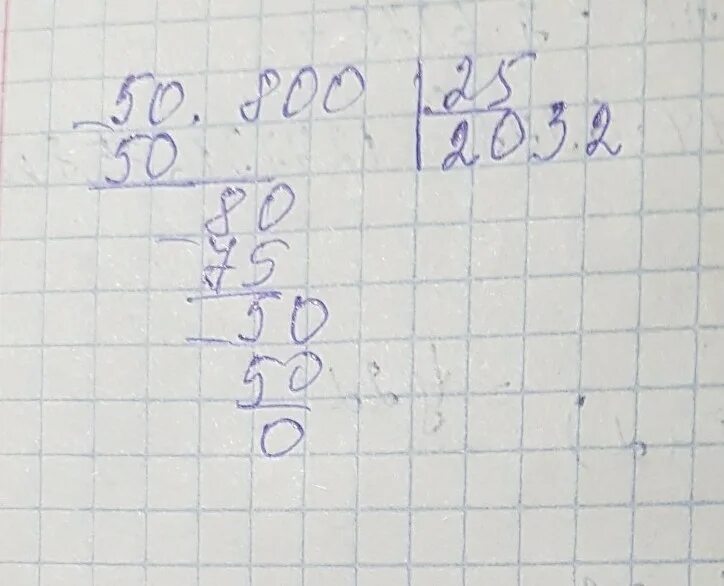 50.800 25
50 20.3.2
80
75
50
50
0